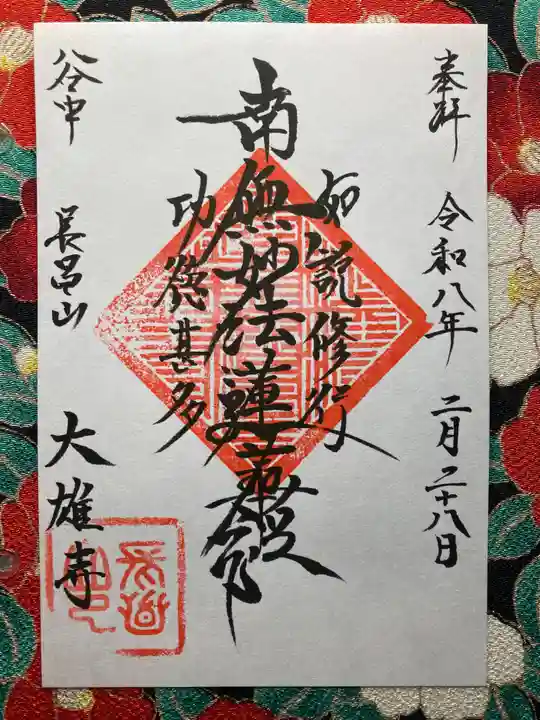 奉拝
令和八年
二月二十八日
如説修行
南無妙法蓮華経
功徳甚多
谷中
長昌山
大雄寺